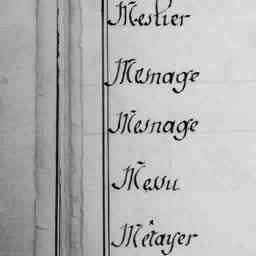 Meslier
Mesnage
Mesnage
Messu
Métayer